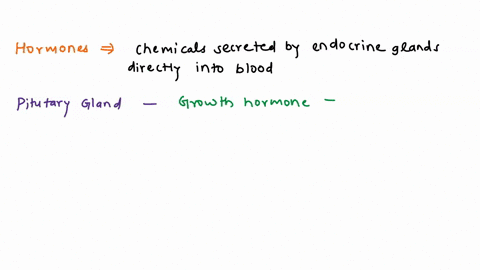 Hormones ⇒ chemicals secreted by endocrine glands
directly into blood
Pitutary Gland — Growth hormone —